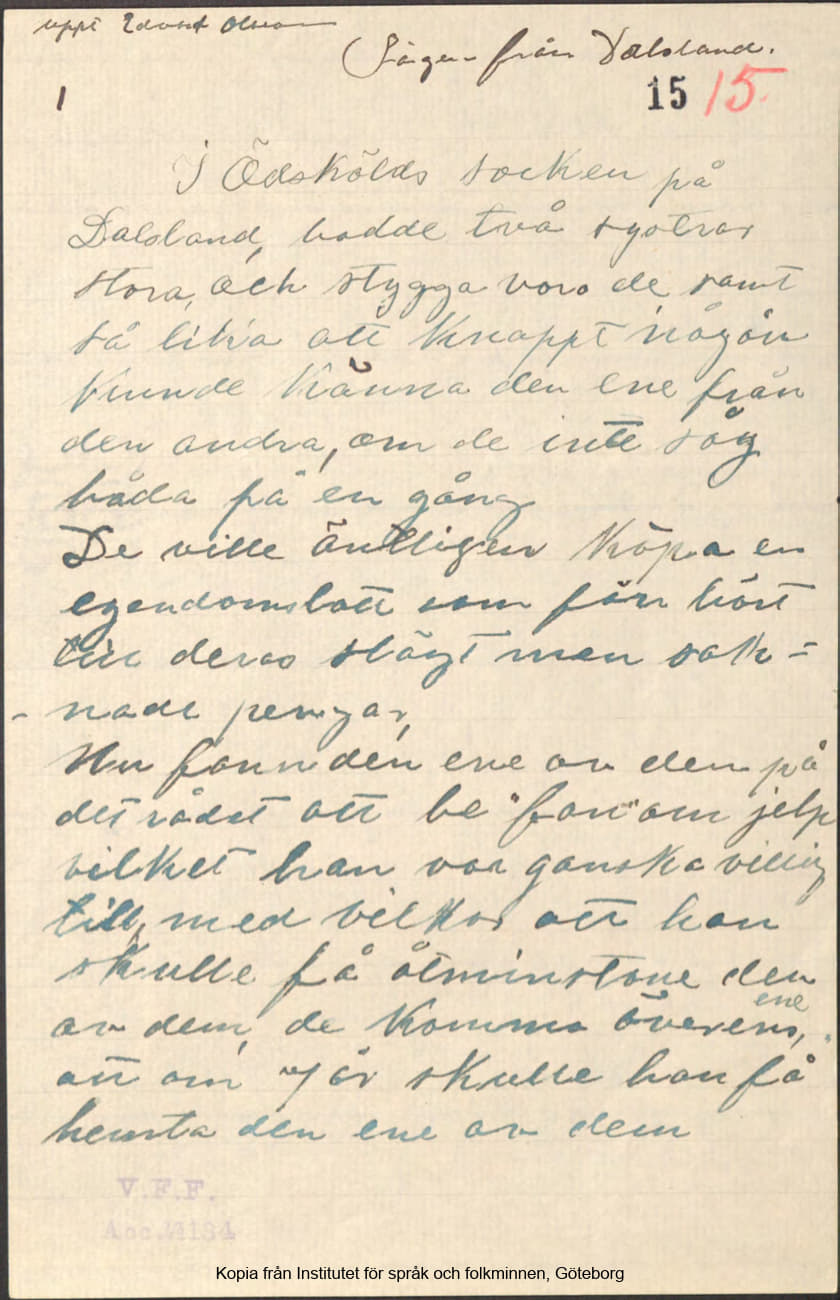 uppt Edvard Olsson
(Sägen från Dalsland.
1
15 15.
I Ödskölds socken på
Dalsland, bodde två systrar
stora, och stygga voro de samt
så lika att knappt någon
kunde känna den ene från
den andra, om de inte såg
båda på en gång
De ville äntligen köpa en
egendomslott som förr hört
till deras slägt men sak=
-nade pengar,
Nu fann den ene av dem på
det rådet att be "fan" om jelp
vilket han var ganska villig
till, med vilkor att han
skulle få åtminstone den
ene
av dem, de komma överens,
att om 7 år skulle han få
hemta den ene av dem
V.F.F.
Acc. 1134
Kopia från Institutet för språk och folkminnen, Göteborg